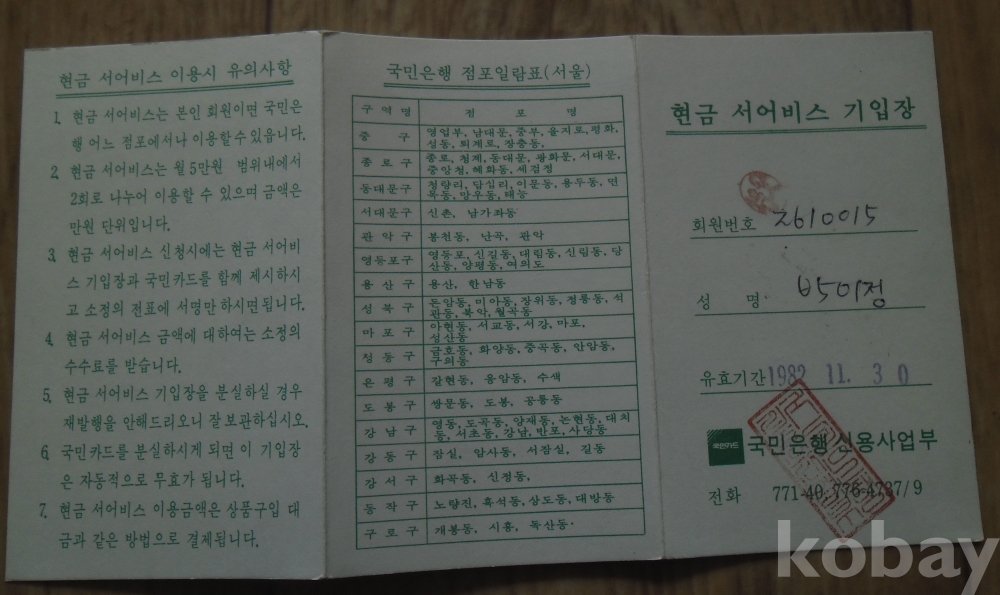 현금 서어비스 이용시 유의사항
1. 현금 서어비스는 본인 회원이면 국민은
행 어느 점포에서나 이용할수 있읍니다.
2. 현금 서어비스는 월5만원 범위내에서
2회로 나누어 이용할 수 있으며 금액은
만원 단위입니다.
3. 현금 서어비스 신청시에는 현금 서어비
스 기입장과 국민카드를 함께 제시하시
고 소정의 전표에 서명만 하시면됩니다.
4. 현금 서어비스 금액에 대하여는 소정의
수수료를 받습니다.
5. 현금 서어비스 기입장을 분실하실 경우
재발행을 안해드리오니 잘 보관하십시오.
6. 국민카드를 분실하시게 되면 이 기입장
은 자동적으로 무효가 됩니다.
7. 현금 서어비스 이용금액은 상품구입 대
금과 같은 방법으로 결제됩니다.
국민은행 점포일람표(서울)
구역명 점포명
중구 영업부, 남대문, 중부, 을지로, 평화,
심동, 퇴계로, 장충동,
종로구 종로, 청계, 동대문, 광화문, 서대문,
중앙청, 혜화동, 세검정
동대문구 청량리, 답십리, 이문동, 용두동, 면
목동, 망우동, 태능
서대문구 신촌, 남가좌동
관악구 봉천동, 난곡, 관악
영등포구 영등포, 신길동, 대림동, 신림동, 당
산동, 양평동, 여의도
용산구 용산, 한남동
성북구 돈암동, 미아동, 장위동, 정릉동, 석
관동, 북악, 월곡동
마포구 아현동, 서교동, 서강, 마포,
성산동
성동구 금호동, 화양동, 중곡동, 안암동,
구의동
은평구 갈현동, 응암동, 수색
도봉구 쌍문동, 도봉, 공릉동
강남구 영동, 도곡동, 양재동, 논현동, 대치
동, 서초동, 강남, 반포, 사당동
강동구 잠실, 암사동, 서잠실, 길동
강서구 화곡동, 신정동,
동작구 노량진, 흑석동, 상도동, 대방동
구로구 개봉동, 시흥, 독산동
현금 서어비스 기입장
회원번호 2610015
성명
유효기간 1982 11. 30
국민카드 국민은행 신용사업부
전화 771-40, 776-4737/9
kobay